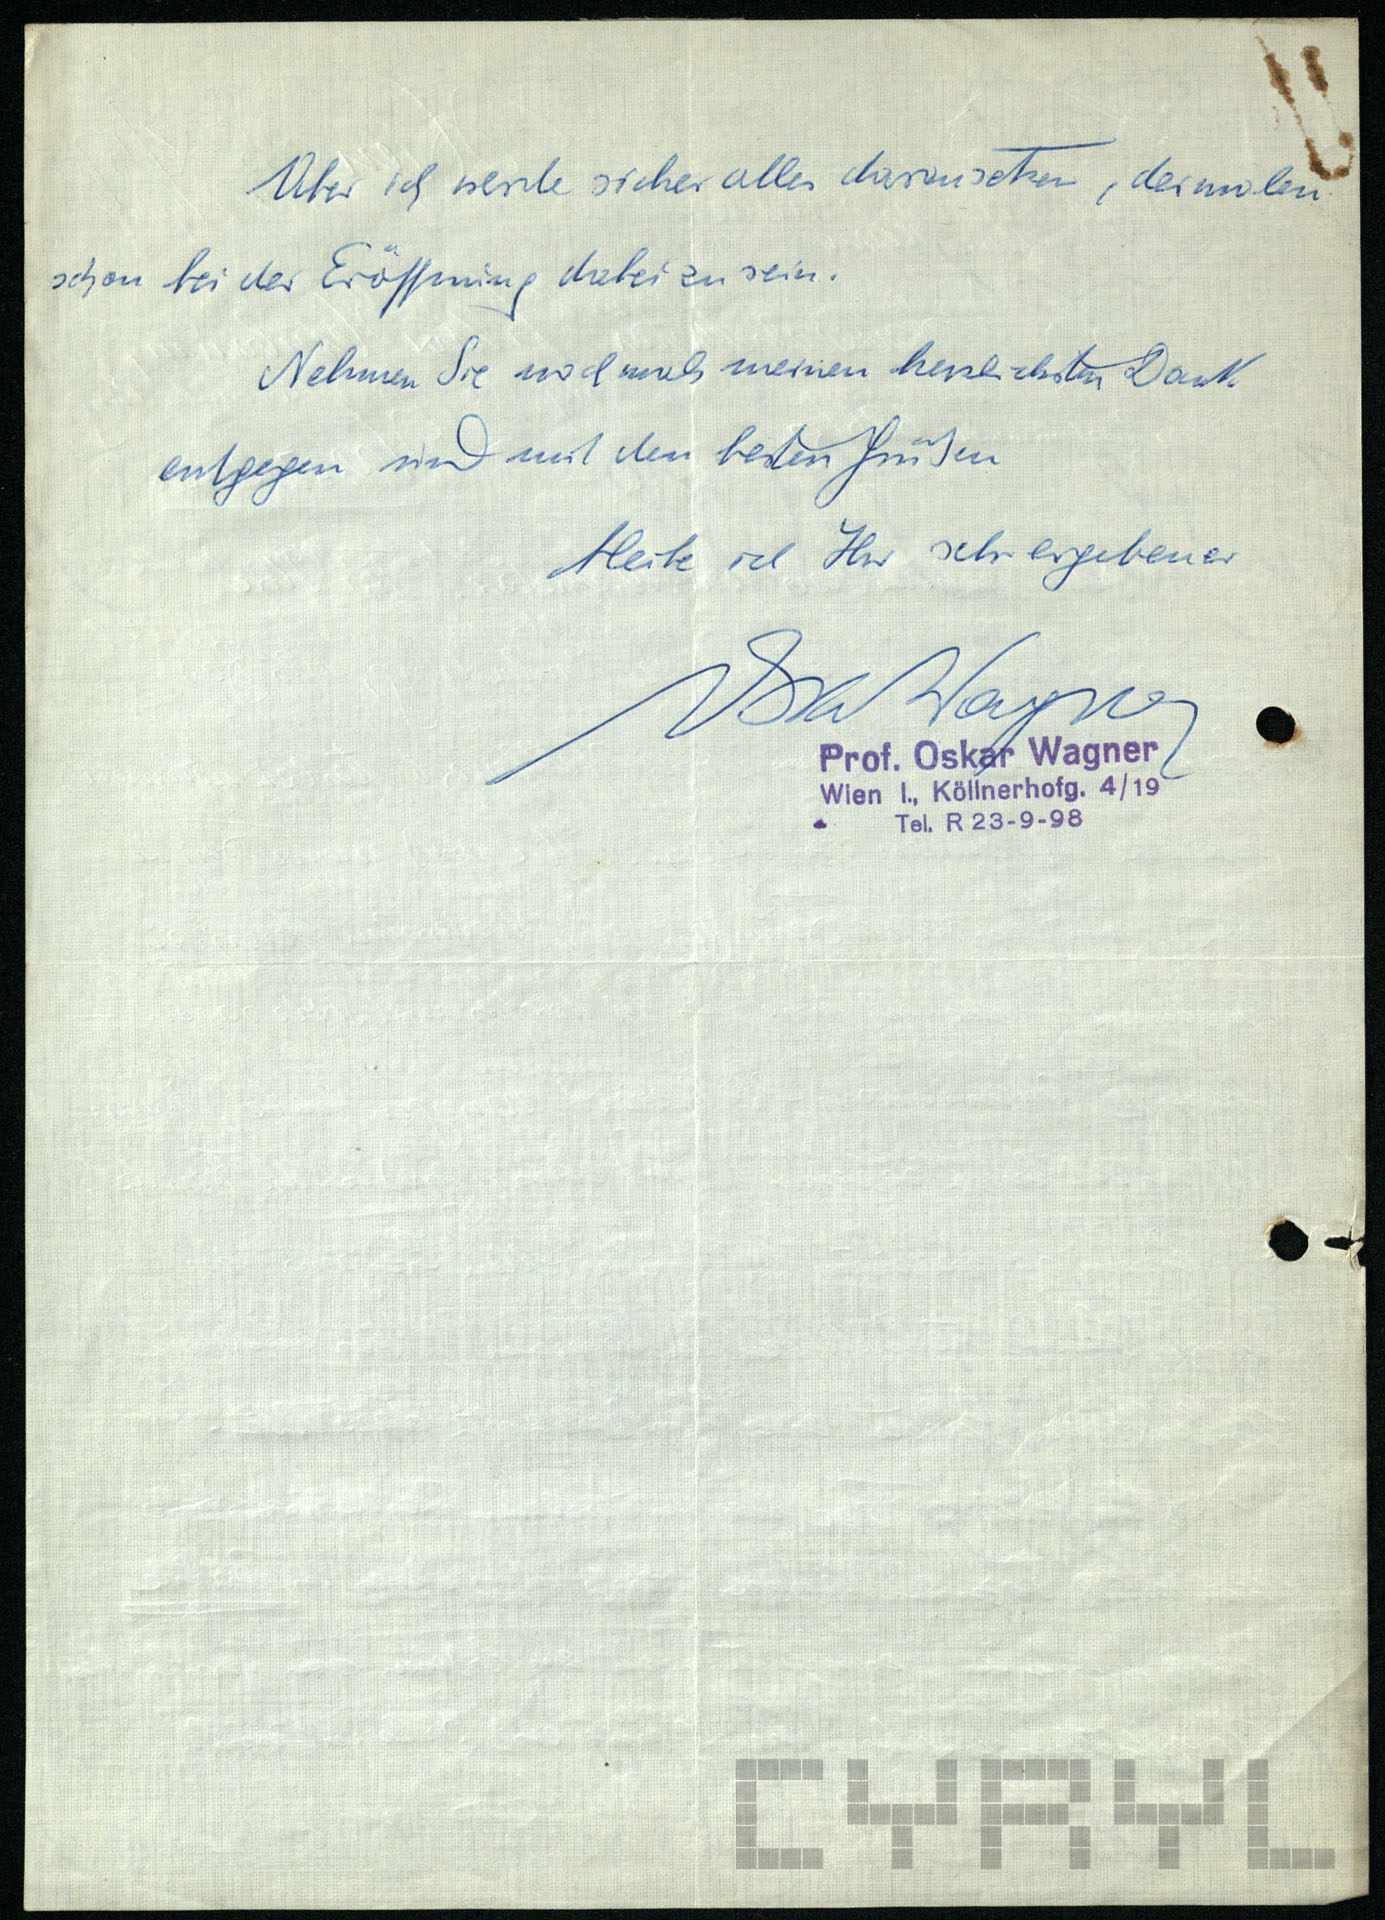 Aber ich werde sicher alles daransetzen, dermalen
schon bei der Eröffnung dabei zu sein.
Nehmen Sie nochmals meinen herzlichsten Dank
entgegen und mit den besten Grüßen
bleibe ich Ihr sehr ergebener
Oskar Wagner
Prof. Oskar Wagner
Wien I., Köllnerhofg. 4/19
Tel. R 23-9-98
CYRYL